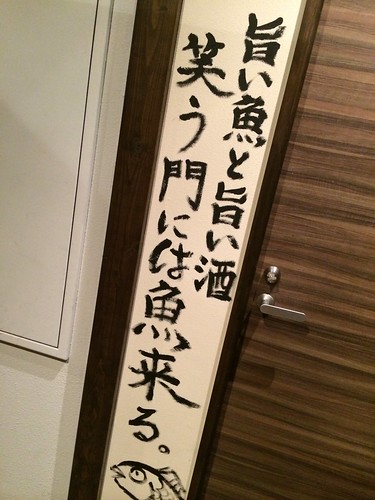 旨い魚と旨い酒
笑う門には魚来る。